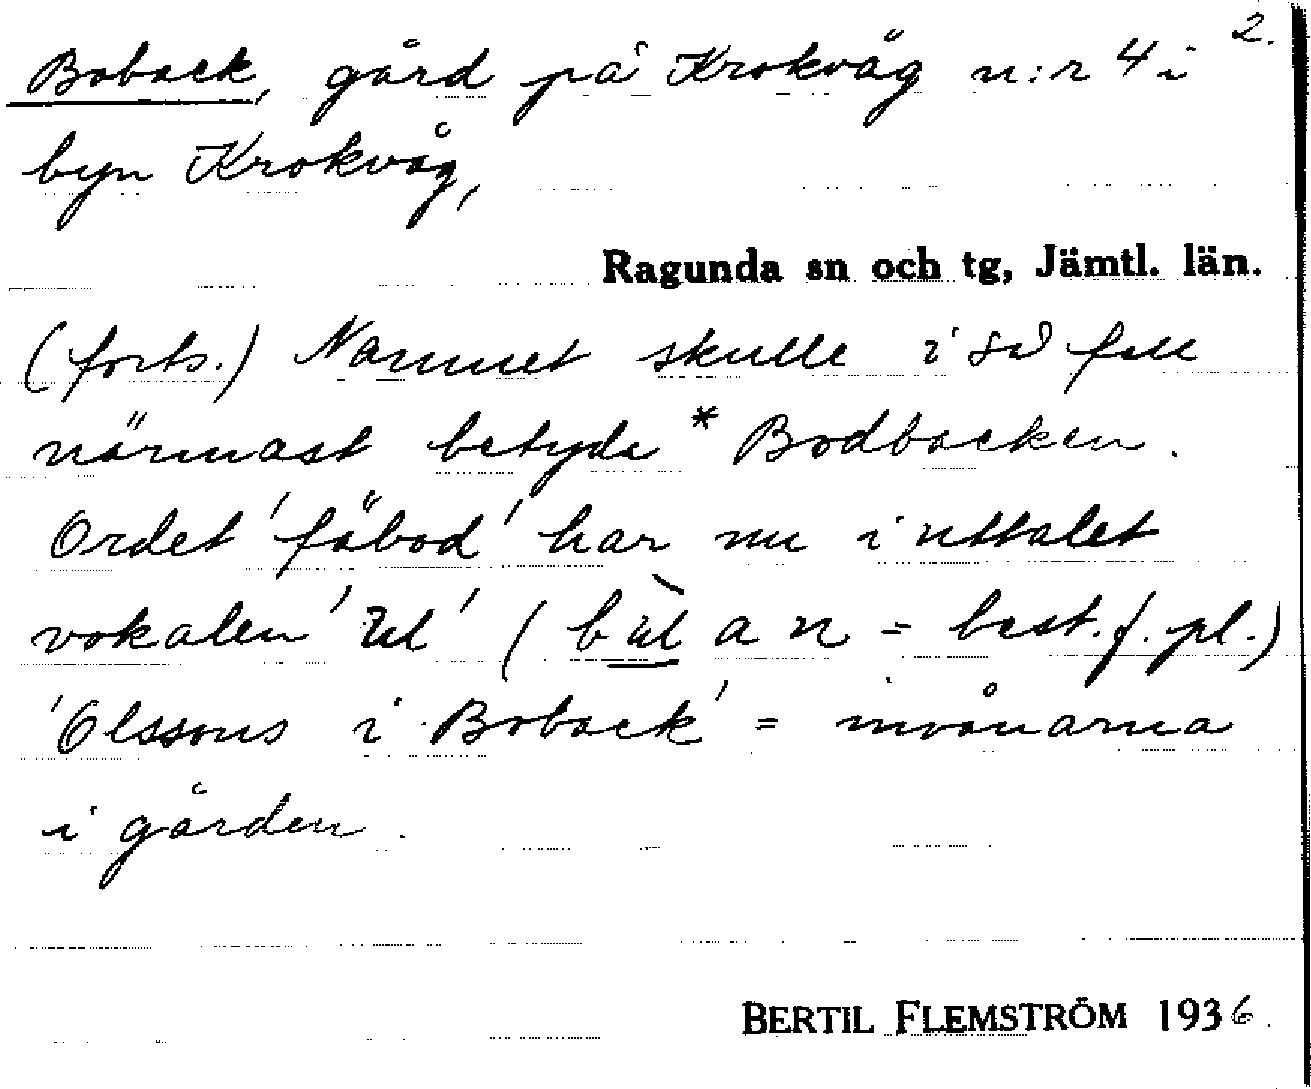 2.
Boback, gård på Krokvåg n:r 4 i
byn Krokvåg,
Ragunda sn och tg, Jämtl. län.
(forts.) Namnet skulle i så fall
närmast betyda *Bodbacken.
Ordet 'fäbod' har nu i uttalet
vokalen (= best. f. pl.)
'Olssons i Boback' = invånarna
i gården.
BERTIL FLEMSTRÖM 1936.